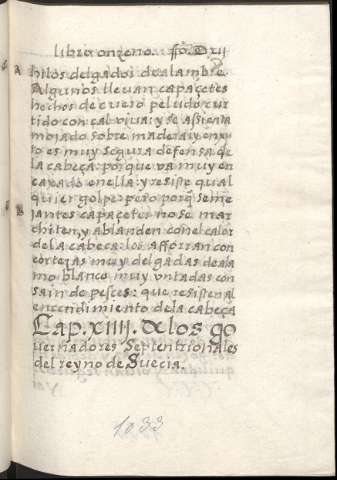 libro onzeno. ffo. Dxij
A hilos delgados de alambre.
Algunos lleuan capaçetes
hechos de cuero peludo cur
tido con cal viua: y se assienta
mojado sobre madera: y enxu
to es muy segura defensa de
la cabeça: porque va muy en
caxado en ella: y resiste qual
quier golpe: pero porq̃ seme
B jantes capaçetes no se mar
chiten, y ablanden con el calor
de la cabeça: los afforran con
cortezas muy delgadas de ala
mo blanco muy vntadas con
sain de pesces: que resisten al
encendimiento de la cabeça
Cap. xiiij. de los go
uernadores Septentrionales
del reyno de Suecia.
1033